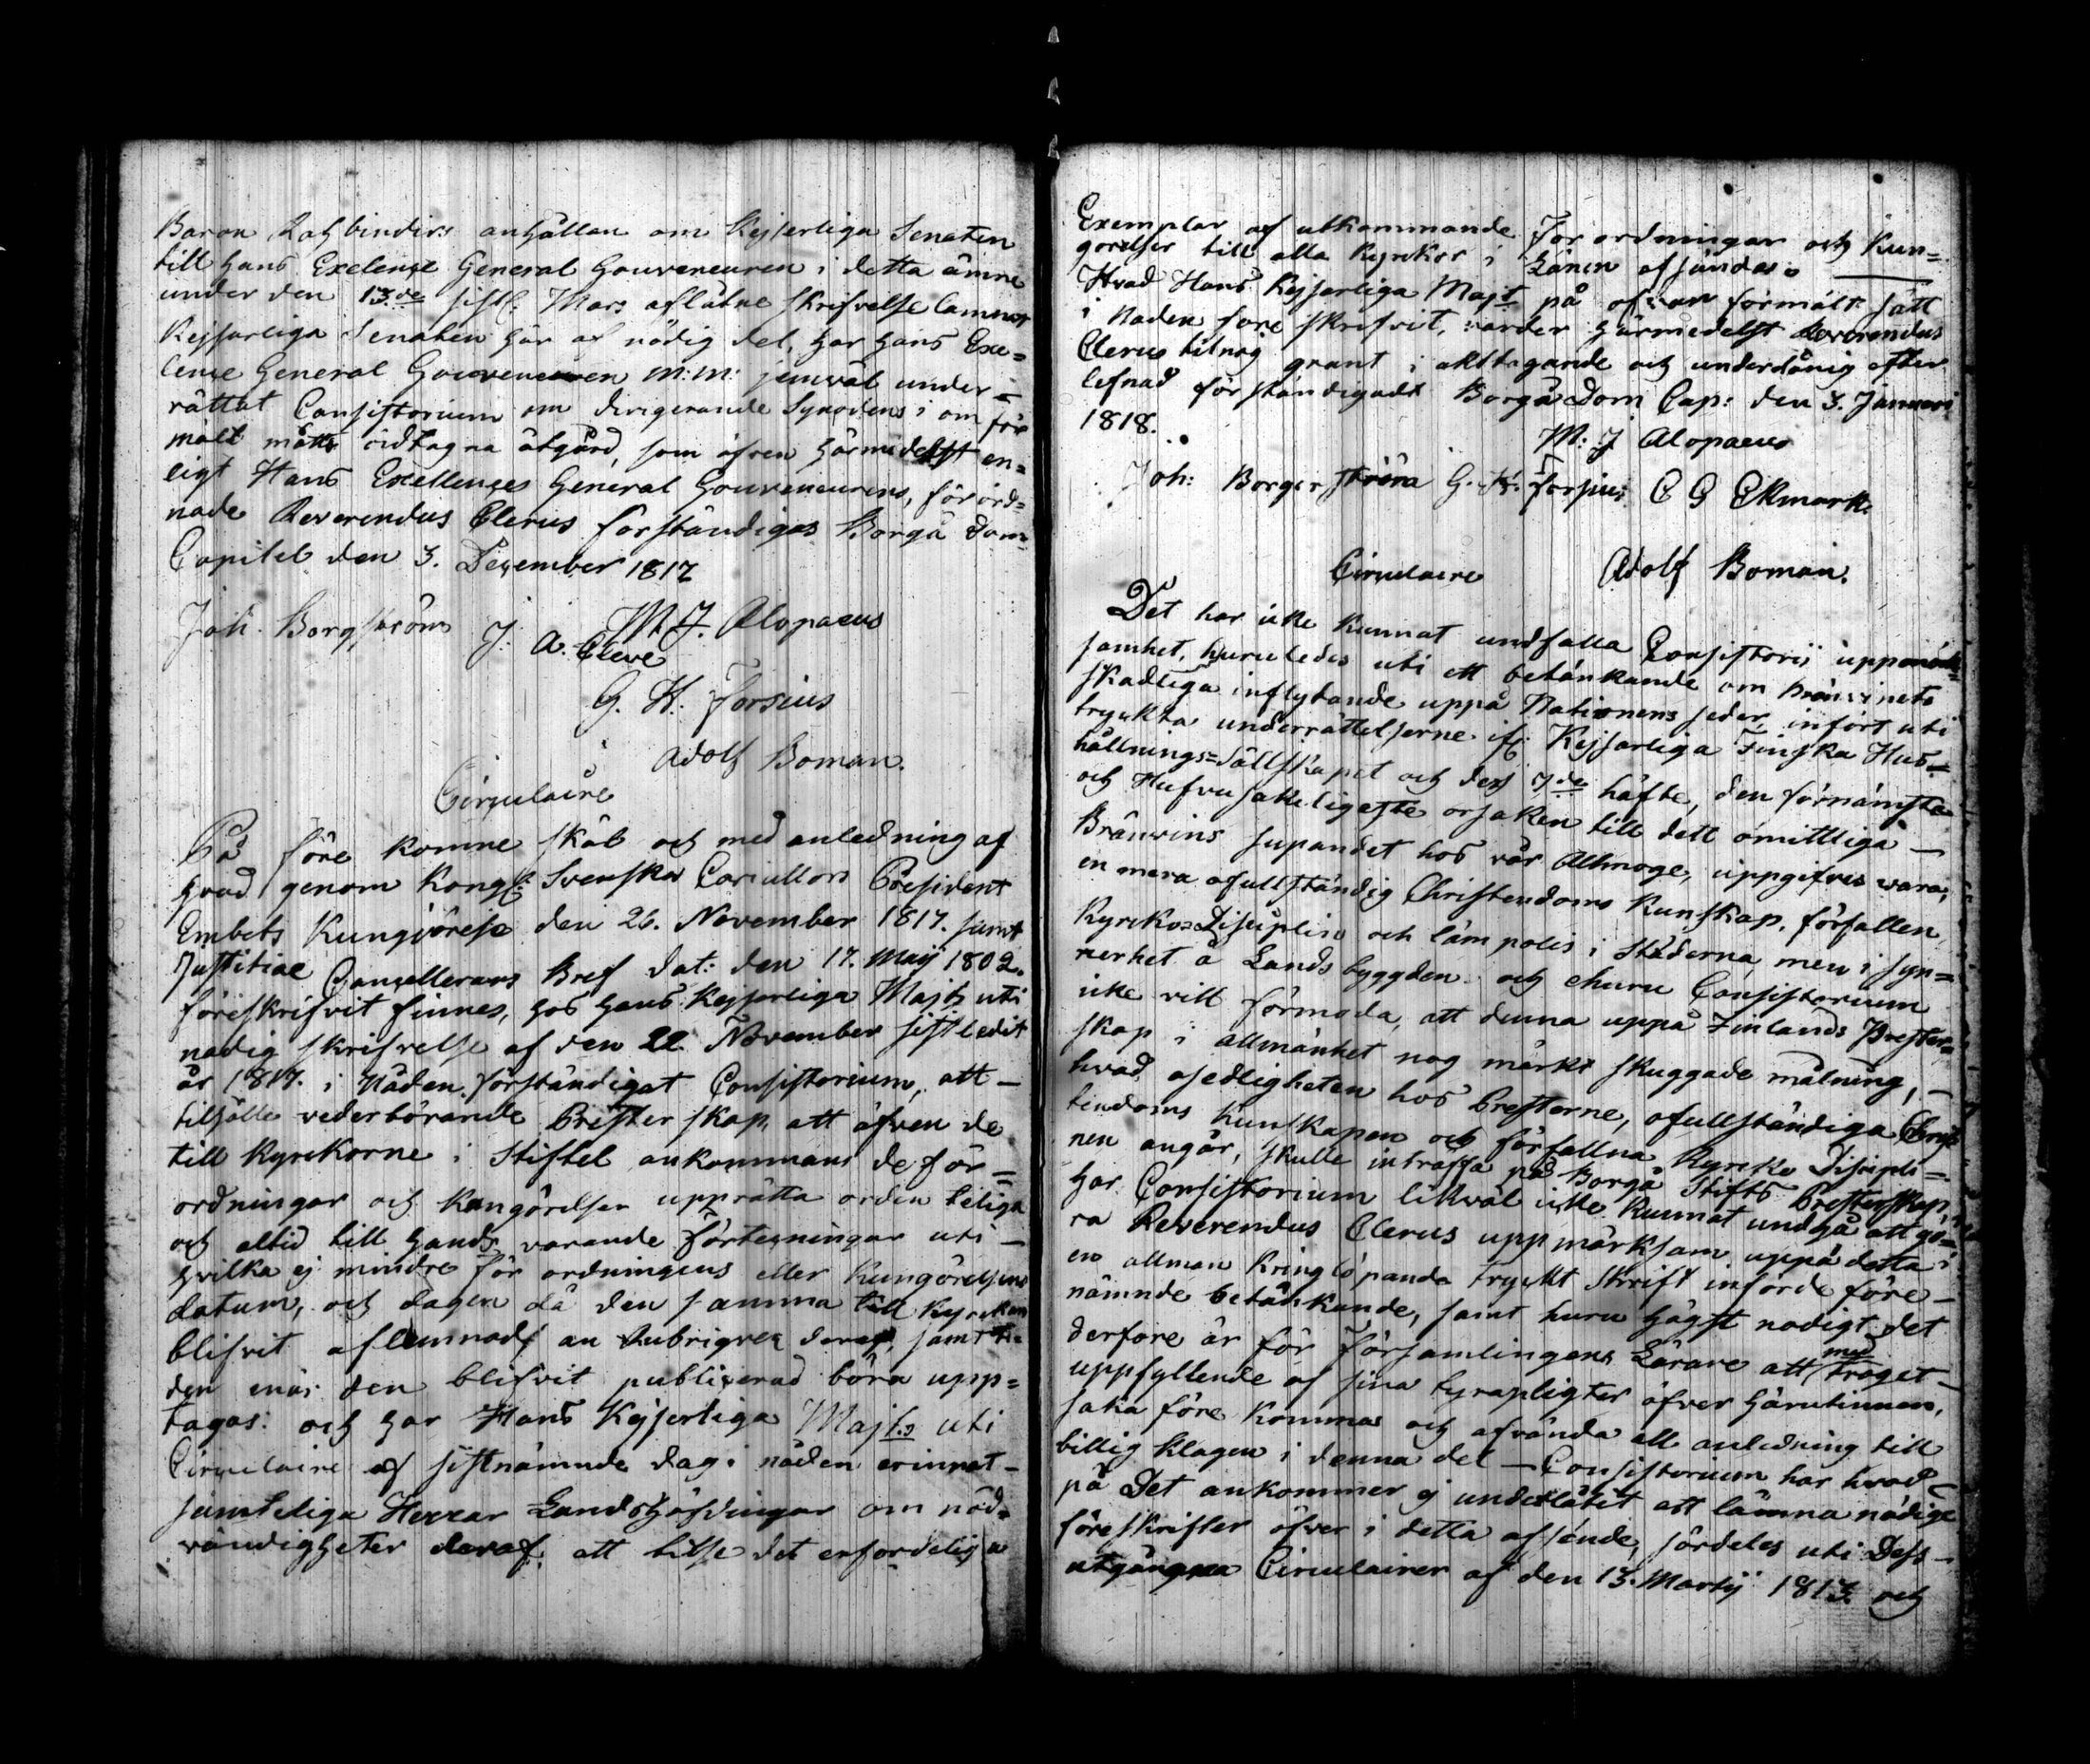 Baron Rahbinders anhållan om Kejserliga Senaten
till hans Exelence General Gouveneuren i detta ämne
under den 13de sistl. Mars aflåtne skrifvelse lämnat
Kejserliga Senaten här af nödig del, har hans Exe=
lence General Gouveneuren m:m: jemväl under=
rättat Consistorium om dirigerande Synodens i om för
mält måtto vidtagna åtgärd, som äfven härmedelst en=
ligt Hans Excellences General Gouveneurens, förord=
nade Reverendus Clerus förständigas Borgå Dom=
Capitel den 3. December 1817
M. J. Alopaeus
Joh. Borgström J. A. Cleve
G. H. Forsius
Adolf Boman.
Circulaire
På före komne skäl och med anledning af
hvad genom Kongl. Svenska Cancellers President
Embets Kungjörelse den 26. November 1817. samt
Justitiae Cancellerans Bref dat: den 17. Maij 1802.
föreskrifvit finnes, hos hans Kejserliga Majts uti
nådig skrifvelse af den 22 November sistledit
år 1817. i Nåden förständigat Consistorium, att —
tilhålla vederbörande Prester skap, att äfven de
till Kyrkorne i Stiftet ankommande för=
ordningar och Kungörelser upprätta ordenteliga
och altid till hands varande förteckningar uti —
hvilka ej mindre för ordningens eller Kungörelsens
datum, och dagen då den samma till Kyrckan
blifvit aflemnad, än Rubriquer deraf, samt ti=
den enär den blifvit publicerad böra upp=
tagas: och har Hans Kejserliga Majts uti
Circulaire af sistnämnde dag i nåden erinnat —
samteliga Herrar Landshöfdingar om nöd=
vändigheter deraf, att tilse det erfordeliga
Exemplar af utkommande Förordningar och Kun=
görelser till alla Kyrckor i Länen afsändas. —
Hvad Hans Kejserliga Majt på ofvan förmält sätt
i Nåden före skrifvit, varder härmedelst Reverendus
Clerus til nog grant i akttagande och underdånig efter
lefnad förständigadt Borgå Dom Cap: den 3. Januari
1818.
M: J Alopaeus
Joh: Borgerström G. H. Forsius C G Ekmark.
Circulaire Adolf Boman.
Det har icke kunnat undfalla Consistorii uppmärk=
samhet, huruledes uti ett betänkande om Bränvinets
skadliga inflytande uppå Nationens seder, infört uti
tryckta underrättelserne ifr. Kejserliga Finska Hus=
hållnings=Sällskapet och des 7de häfte, den förnämsta
och Hufvusakeligaste orsaken till dett omittliga —
Bränvins supandet hos vår Allmoge, uppgifves vara,
en mera ofullständig Christendoms Kunskap, förfallen
Kyrko=Disciplin och läm polis i Städerna, men i syn=
nerhet å Landsbyggden och ehuru Consistorium
icke vill förmoda, att denna uppå Finlands Prester=
skap i allmänhet nog märkt skuggade målning, —
hvad osedligheten hos Presterne, ofullständiga Chris
tendoms Kunskapen och förfallna Kyrcko Discipli=
nen angår, skulle inträffa på Borgå Stifts Presterskap,
har Consistorium likväl icke kunnat undgå att gö=
ra Reverendus Clerus uppmärksam uppå detta i
en allmän kringlöpande tryckt Skrift införde före —
nämnde betänkande, samt huru högst nödigt det
derföre är för Församlingens Lärare att med troget —
uppfyllende af sina Lyrapligter öfver härutinnan,
saka före komma och afvända all anledning till
billig klagen i denna del — Consistorium har hvad
på Det ankommer ej underlåtit att lämna nödige
föreskrifter öfver i detta afseende, särdeles uti Dess —
utgångna Circulairer af den 13. Martij 1813 och